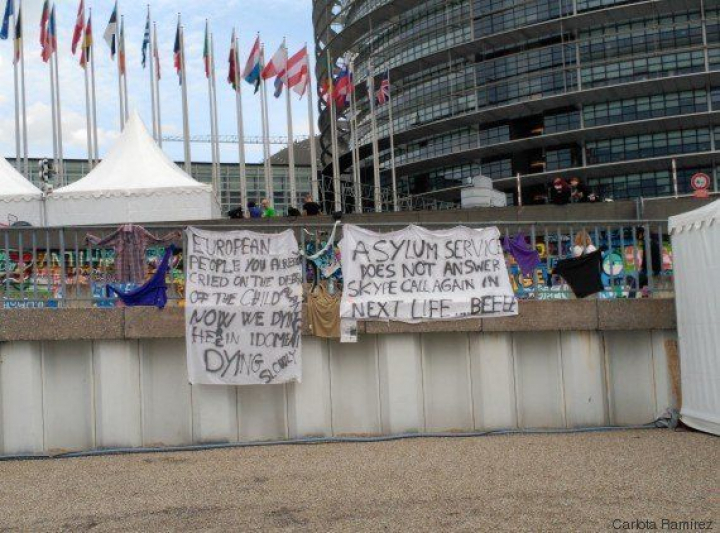 EUROPEAN
PEOPLE YOU ALREADY
CRIED ON THE
OF THE CHILD
NOW WE DYING
HERE IN IDOMENI
DYING SLOWLY
ASYLUM SERVICE
DOES NOT ANSWER
SKYPE CALL AGAIN IN
NEXT LIFE... BEEEE
Carlota Ramírez